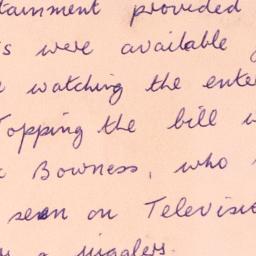 tainment provided
s were available
watching the enter
Topping the bill w
Bowness, who
seen on Televisi
a jugglers.